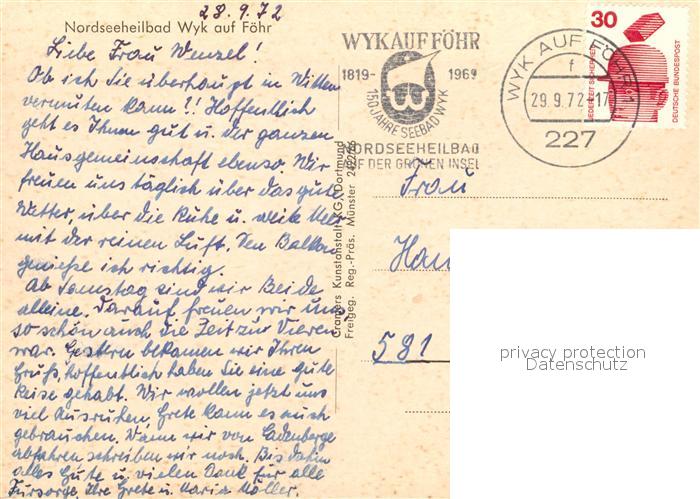 28.9.72
Nordseeheilbad Wyk auf Föhr
Liebe Frau Wenzel!
Ob ich Sie überhaupt in Witten
vermuten kann?! Hoffentlich
geht es Ihnen gut u. der ganzen
Hausgemeinschaft ebenso. Wir
freuen uns täglich über das gute
Wetter, über die Ruhe u. weite Meer
mit der reinen Luft. Den Balkon
genieße ich richtig.
Ab Samstag sind wir Beide
alleine. Darauf freuen wir uns
so schön auch die Zeit zur Vieren
war. Gestern bekamen wir Ihren
Gruß, hoffentlich haben Sie eine gute
Reise gehabt. Wir wollen jetzt uns
viel Ausruhen, Grete kann es auch
gebrauchen. Wann wir von
abfahren schreiben wir noch. Bis dahin
alles Gute u. vielen Dank für alle
Fürsorge. Ihre Grete u. Maria Möller.
Cramers Kunstanstalt KG, Dortmund
Freigeg. Reg.-Präs. Münster
WYK AUF FÖHR
1819- 1969
150 JAHRE SEEBAD WYK
NORDSEEHEILBAD
AUF DER GRÜNEN INSEL
WYK AUF FÖHR 1
f
29.9.72-17
227
30
JEDERZEIT SICHERHEIT
DEUTSCHE BUNDESPOST
Frau
Han
581
privacy protection
Datenschutz